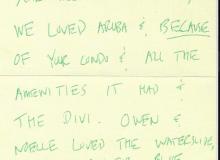 WE LOVED ARUBA & BECAUSE
OF YOUR CONDO & ALL THE
AMENITIES IT HAD &
THE DIVI. OWEN &
NOELLE LOVED THE WATERSLIDE,
BLUE